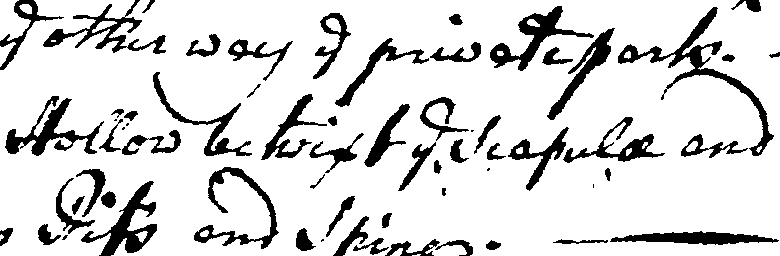 ye other way ye private parts. -
Hollow betwixt ye Scapulæ and
Ribs and Spines. —